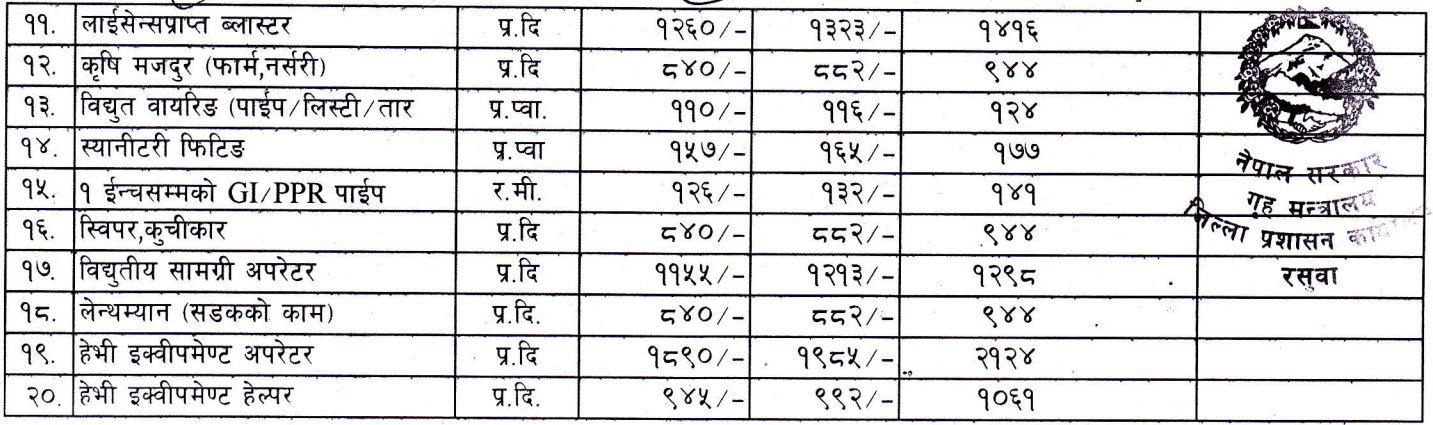 ११. लाईसेन्सप्राप्त ब्लास्टर प्र.दि १२६०/- १३२३/- १४१६
१२. कृषि मजदुर (फार्म,नर्सरी) प्र.दि ८४०/- ८८२/- ९४४
१३. विद्युत वायरिङ (पाईप/लिस्टी/तार प्र.प्वा. ११०/- ११६/- १२४
१४. स्यानीटरी फिटिङ प्र.प्वा १५७/- १६५/- १७७
१५. १ ईन्चसम्मको GI/PPR पाईप र.मी. १२६/- १३२/- १४१
१६. स्विपर,कुचीकार प्र.दि ८४०/- ८८२/- ९४४
१७. विद्युतीय सामग्री अपरेटर प्र.दि ११५५/- १२१३/- १२९८
१८. लेन्थम्यान (सडकको काम) प्र.दि. ८४०/- ८८२/- ९४४
१९. हेभी इक्वीपमेण्ट अपरेटर प्र.दि १८९०/- १९८५/- २१२४
२०. हेभी इक्वीपमेण्ट हेल्पर प्र.दि. ९४५/- ९९२/- १०६१
नेपाल सरकार
गृह मन्त्रालय
जिल्ला प्रशासन
रसुवा